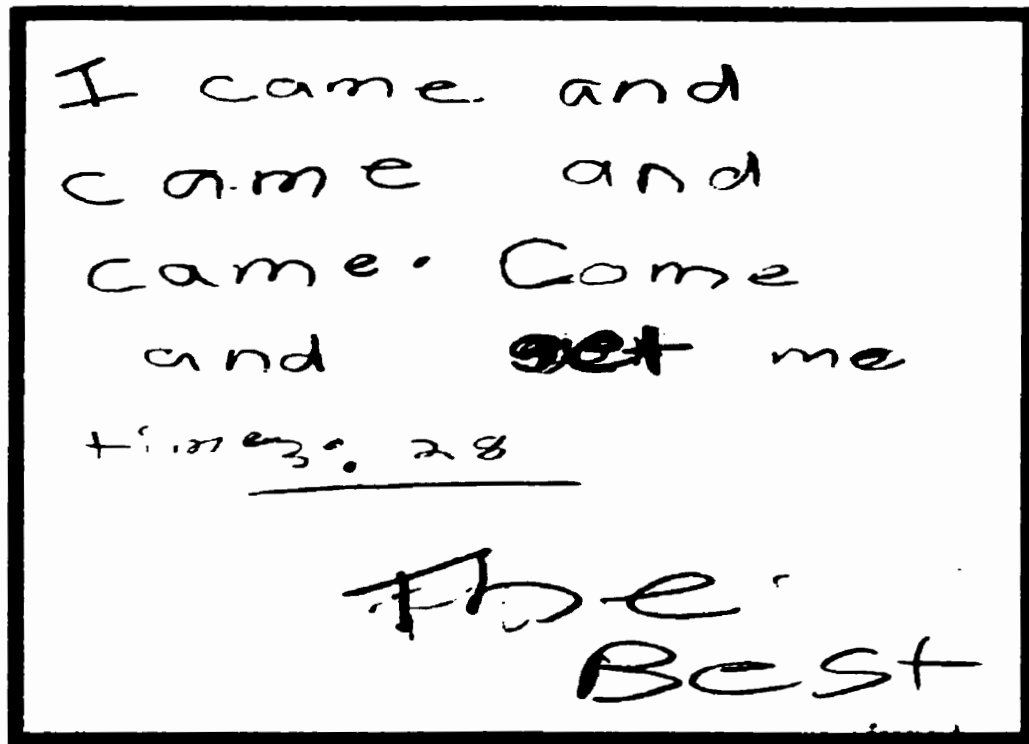 I came and
came and
came. Come
and get me
times: 28
The
Best